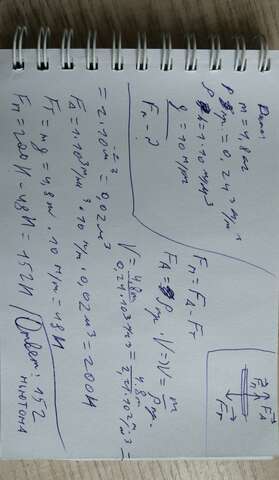 Дано:
m = 4,8 кг
ρ др. = 0,24 г/м³
ρ в = 1·10³ кг/м³
g = 10 Н/кг
Fп - ?
Fп = FА - Fт
FА = ρ ж g · V => V = m/ρ др.
V = 4,8 кг / 0,24·10³ кг/м³ = 4,8 / 2,4·10² м³ =
= 2·10⁻² м³ = 0,02 м³
FА = 1·10³ кг/м³ · 10 Н/кг · 0,02 м³ = 200 Н
Fт = mg = 4,8 кг · 10 Н/кг = 48 Н
Fп = 200 Н - 48 Н = 152 Н / Ответ: 152
ньютона
Fп FА
Fт